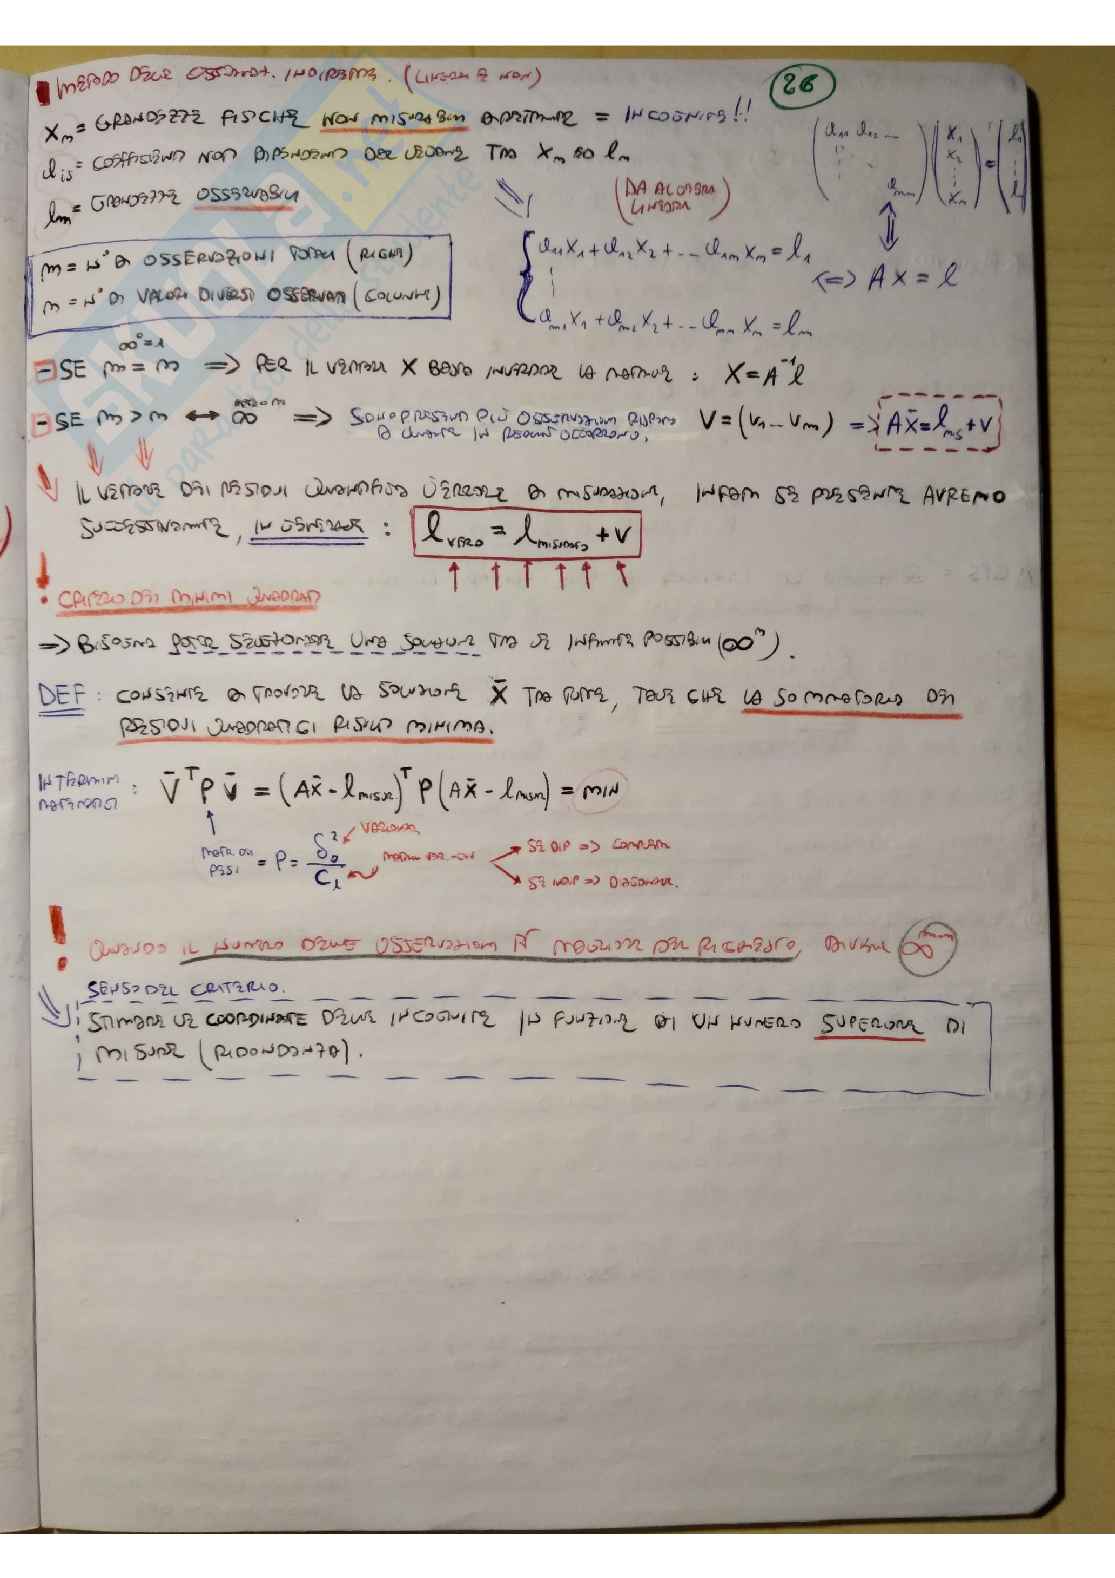 METODO DELLE OSSERVAZ. INDIRETTE. (LINEARI E NON)
26
Xm = GRANDEZZE FISICHE NON MISURABILI DIRETTAMENTE = INCOGNITE!!
COEFFICIENTI NON DIPENDENTI DEL LEGAME TRA Xm ED lm
lm = GRANDEZZE OSSERVABILI
(DA ALGEBRA LINEARE)
m = N° DI OSSERVAZIONI TOTALI (RIGHE)
m = N° DI VALORI DIVERSI OSSERVATI (COLONNE)
a11 X1 + a12 X2 + ... a1m Xm = l1
am1 X1 + am2 X2 + ... amm Xm = lm
<=> AX = l
∞°=1
- SE m = m => PER IL VETTORE X BASTA INVERTIRE LA MATRICE : X = A⁻¹ l
- SE m > m <-> ∞ => SONO PRESENTI PIÙ OSSERVAZIONI RISPETTO A QUANTE IN REALTÀ OCCORRONO. V = (V1 ... Vm) => AX̄ = l MIS + V
IL VETTORE DEI RESIDUI QUANTIFICA L'ERRORE DI MISURAZIONE, INFATTI SE PRESENTE AVREMO
SUCCESSIVAMENTE, IN GENERALE : l VERO = l MISURATO + V
! CRITERIO DEI MINIMI QUADRATI
=> BISOGNA POTER SELEZIONARE UNA SOLUZIONE TRA LE INFINITE POSSIBILI (∞ᵐ).
DEF : CONSENTE DI TROVARE LA SOLUZIONE X̄ TRA TUTTE, TALE CHE LA SOMMATORIA DEI
RESIDUI QUADRATICI RISULTI MINIMA.
IN TERMINI MATEMATICI : V̄ᵀ P V̄ = (AX̄ - l MISUR)ᵀ P (AX̄ - l MISUR) = MIN
VARIANZA
MATR. DI PESI = P = δ₀² / Cl
SE DIP => COMPLETA
SE INDIP => DIAGONALE.
! QUANDO IL NUMERO DELLE OSSERVAZIONI È MAGGIORE DEL RICHIESTO, DIVIENE ∞
SENSO DEL CRITERIO.
STIMARE LE COORDINATE DELLE INCOGNITE IN FUNZIONE DI UN NUMERO SUPERIORE DI
MISURE (RIDONDANZA).